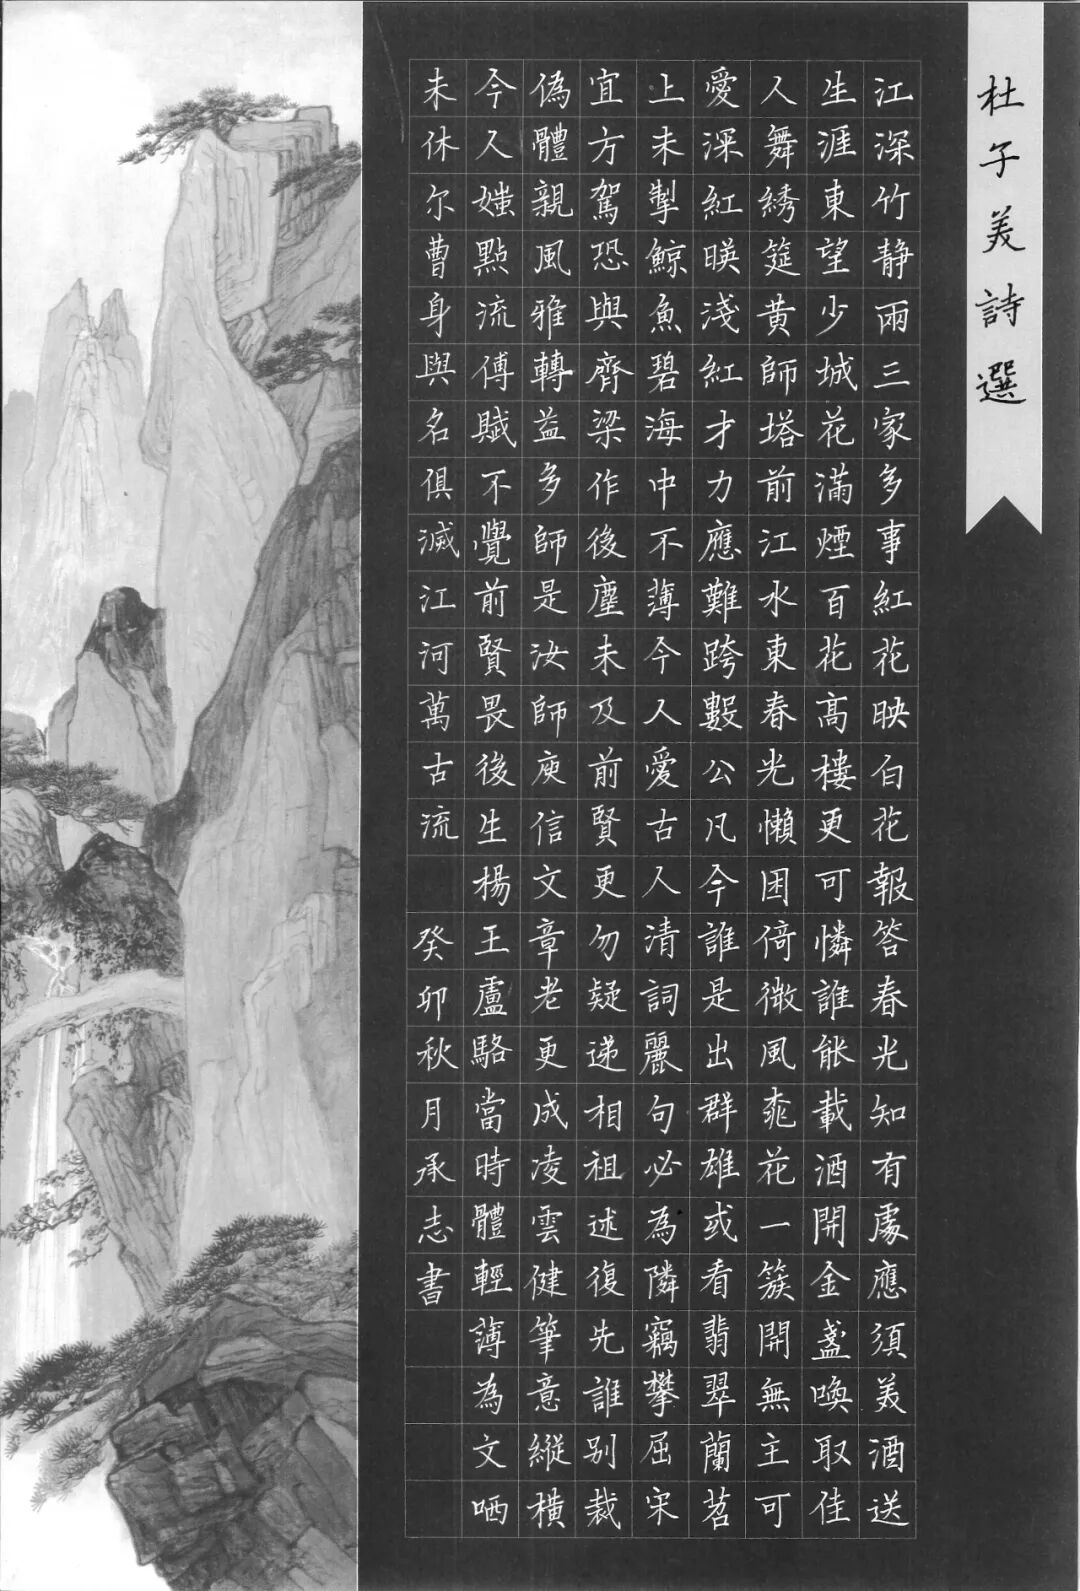 杜子美詩選
江深竹静兩三家多事紅花映白花報答春光知有處應須美酒送
生涯東望少城花滿煙百花高樓更可憐誰能載酒開金盞喚取佳
人舞綉筵黄師塔前江水東春光懶困倚微風桃花一簇開無主可
愛深紅映淺紅才力應難跨數公凡今誰是出群雄或看翡翠蘭苕
上未掣鯨魚碧海中不薄今人愛古人清詞麗句必為隣竊攀屈宋
宜方駕恐與齊梁作後塵未及前賢更勿疑递相祖述復先誰别裁
偽體親風雅轉益多師是汝師庾信文章老更成凌雲健筆意縱横
今人嗤點流傳賦不覺前賢畏後生楊王盧駱當時體輕薄為文哂
未休尔曹身與名俱滅江河萬古流 癸卯秋月承志書